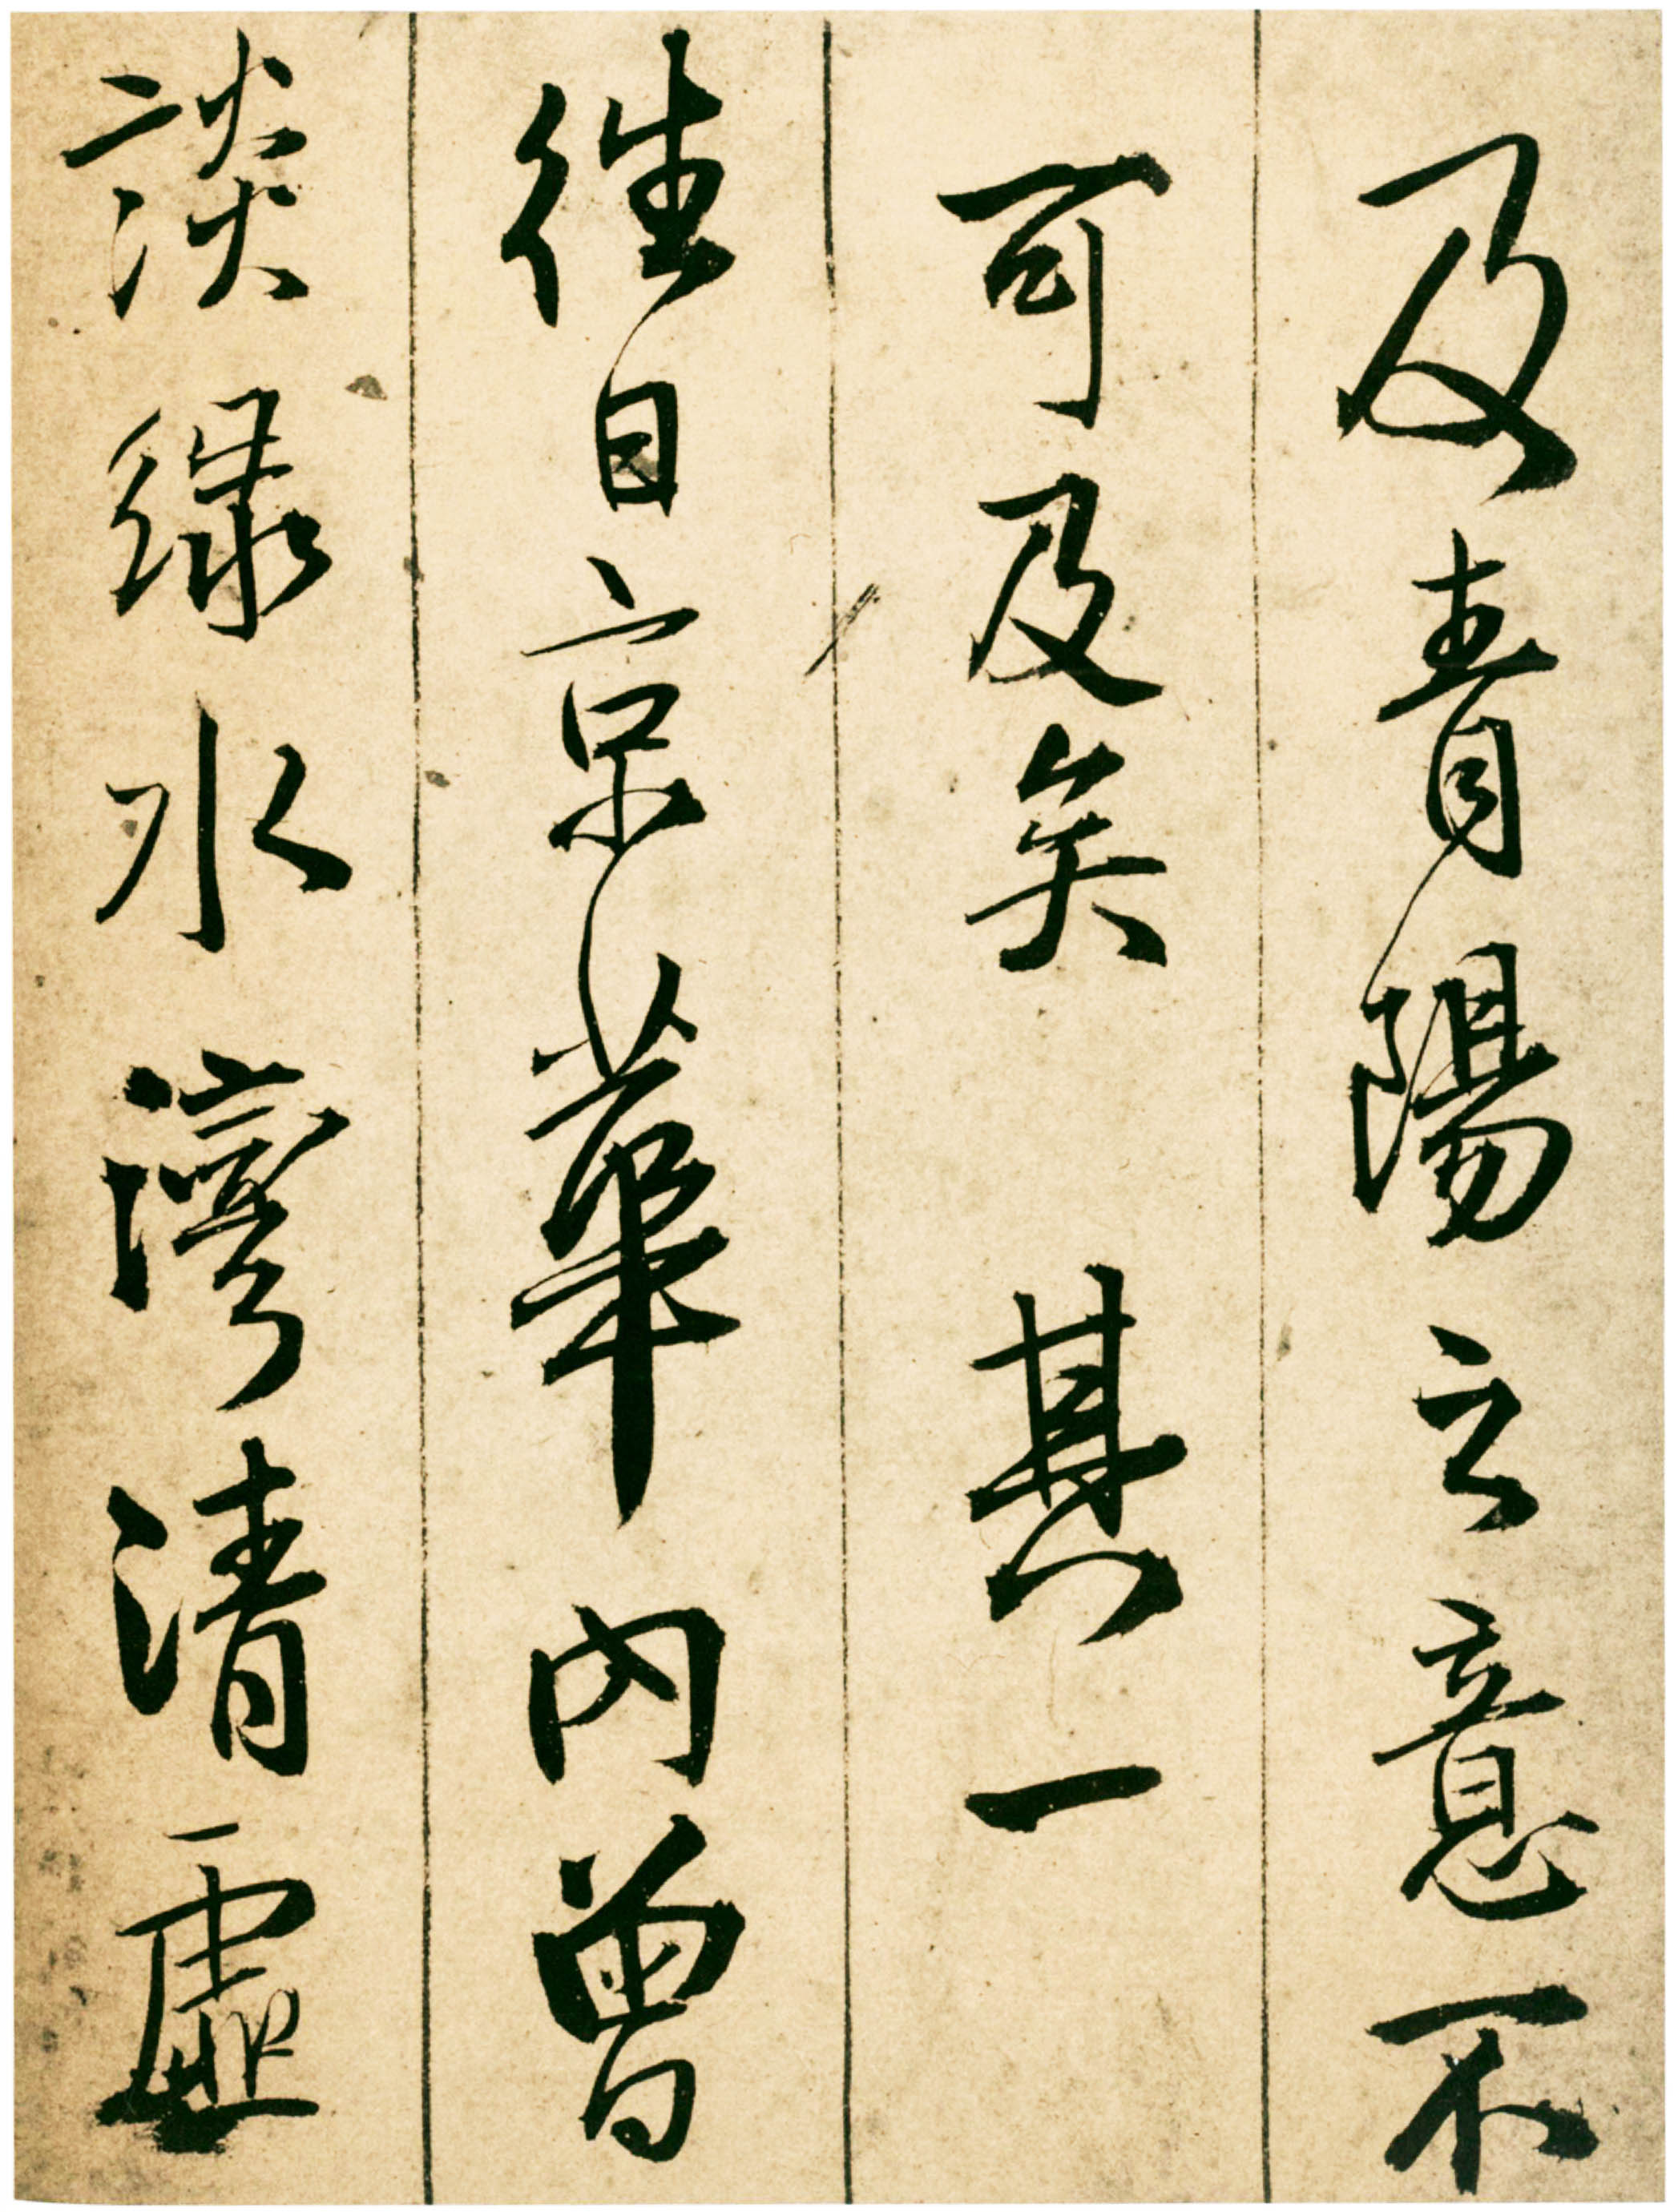 及青陽之意不
可及矣 其一
往日京華內曾
談綠水灣清虛